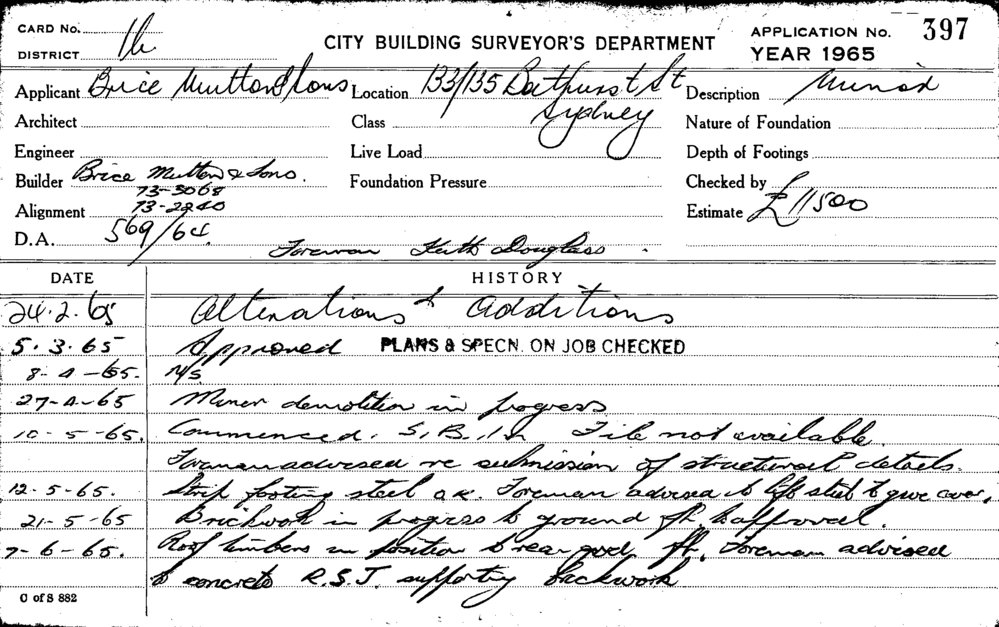 CARD No.
DISTRICT
CITY BUILDING SURVEYOR'S DEPARTMENT
APPLICATION No. 397
YEAR 1965
Applicant Brice Mutton & Sons Location 133/135 Bathurst St Description Minor
Sydney
Architect Class Nature of Foundation
Engineer Live Load Depth of Footings
Builder Brice Mutton & Sons. Foundation Pressure Checked by
73-5068
Alignment 73-2240 Estimate £11500
D.A. 569/64.
Foreman Keith Douglass.
DATE HISTORY
24.2.65 Alterations & additions
5.3.65 Approved PLANS & SPECN. ON JOB CHECKED
8-4-65. N/S.
27-4-65 Minor demolition in progress
10-5-65. Commenced. S.B. File not available.
Foreman advised re submission of structural details.
12-5-65. Strip footing steel o.k. Foreman advised to lift steel to give cover.
21-5-65 Brickwork in progress to ground flr. approval.
7-6-65. Roof timbers in position to rear grd. flr. Foreman advised
to concrete R.S.J. supporting backwork
C of S 882